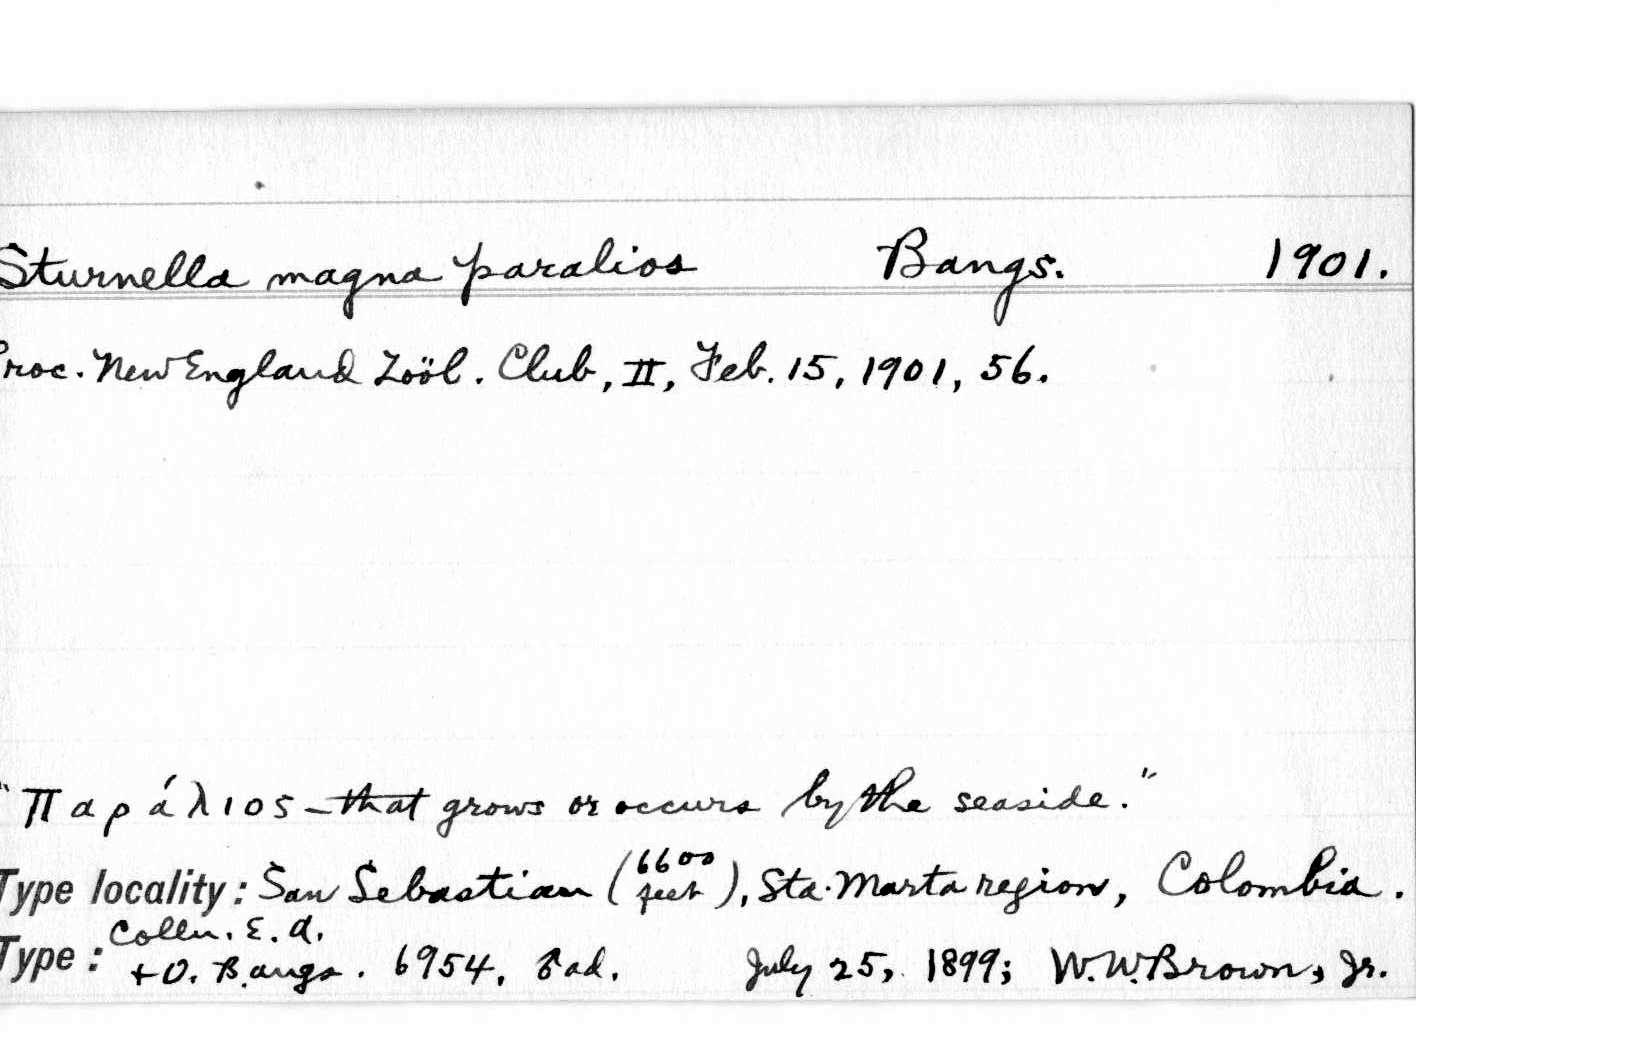 Sturnella magna paralios Bangs. 1901.
Proc. New England Zoöl. Club, II, Feb. 15, 1901, 56.
"Παράλιος – that grows or occurs by the seaside."
Type locality: San Sebastian (6600 feet), Sta. Marta region, Colombia.
Type: Colln. E. A. + O. Bangs. 6954, ♂ ad. July 25, 1899; W. W. Brown, Jr.